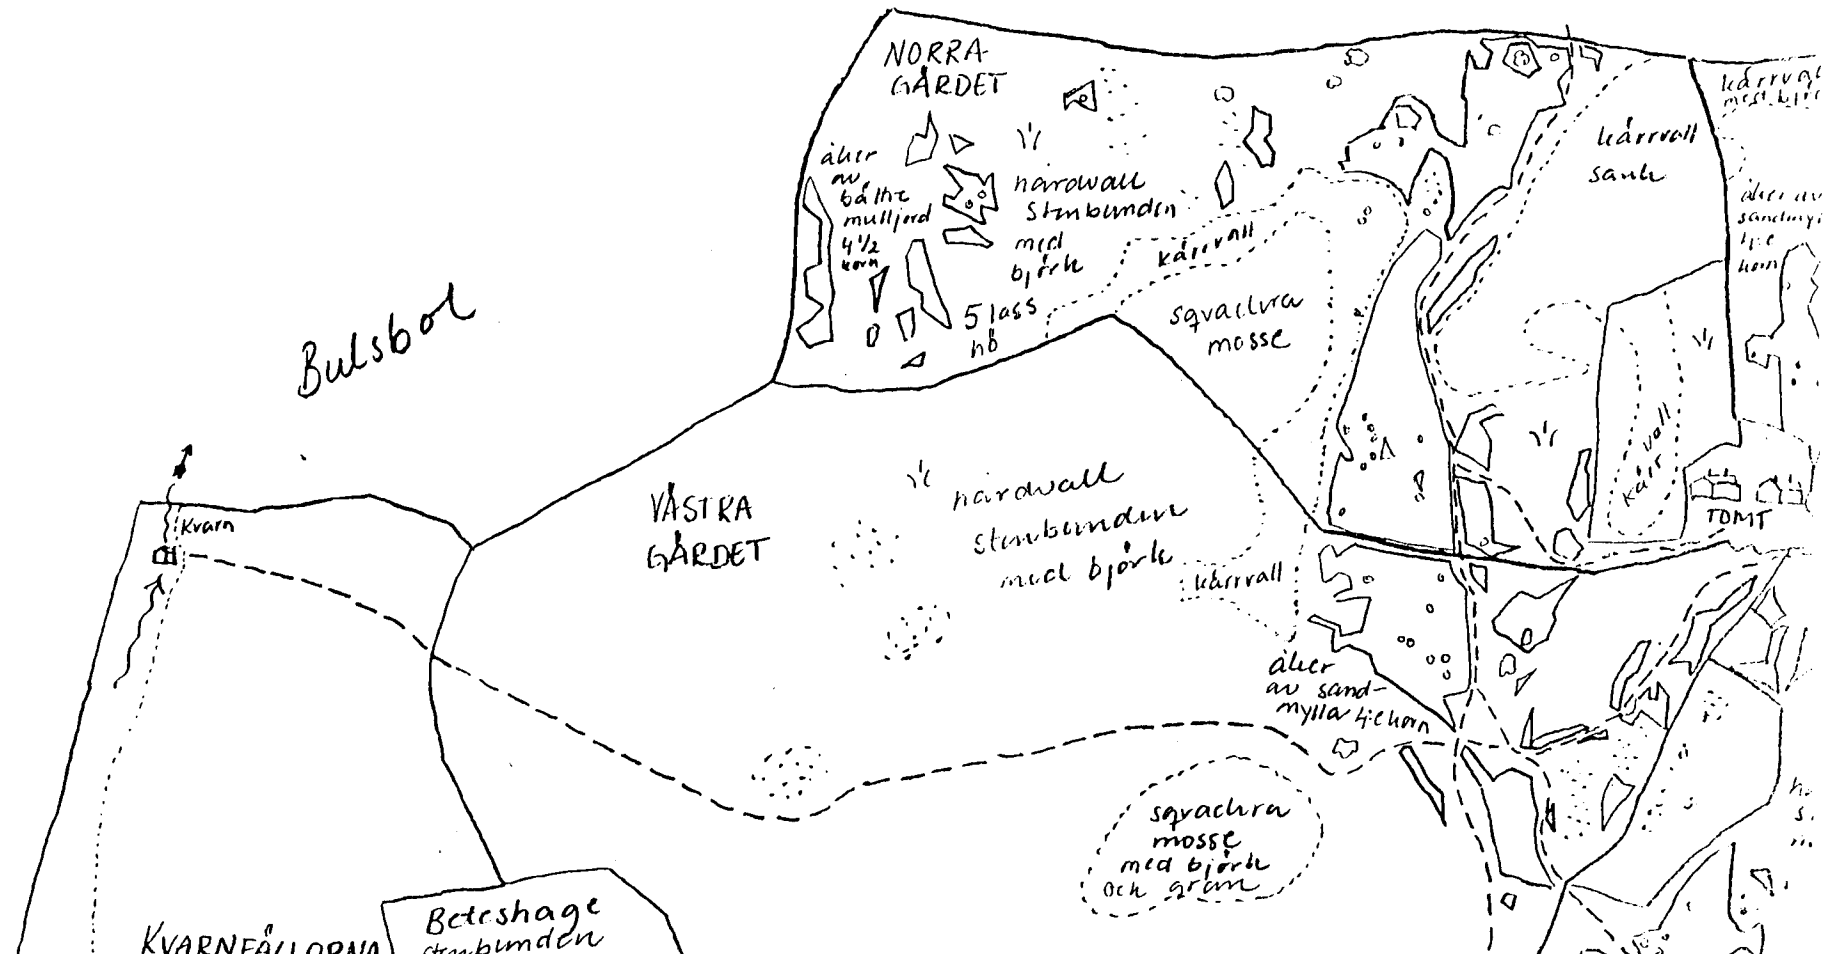 NORRA-
GÄRDET
åker
av
bättre
mulljord
4 1/2
korn
hårdvall
stenbunden
med
björk
5 lass
hö
kärrvall
sqvachra
mosse
kärrvall
sank
kärrvall
mest
åker av
kärrvall
TOMT
Bulsbol
Kvarn
VÄSTRA
GÄRDET
hårdvall
stenbunden
med björk
kärrvall
åker
av sand-
mylla 4:e korn
sqvachra
mosse
med björk
och gran
KVARNFÄLLORNA
Beteshage
stenbunden